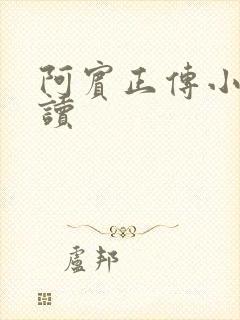 阿賓正傳小
讀
盧邦